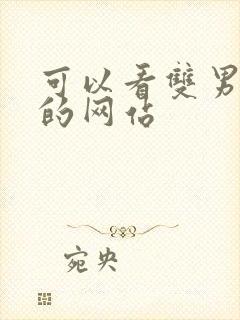 可以看雙男
的网站
宛央